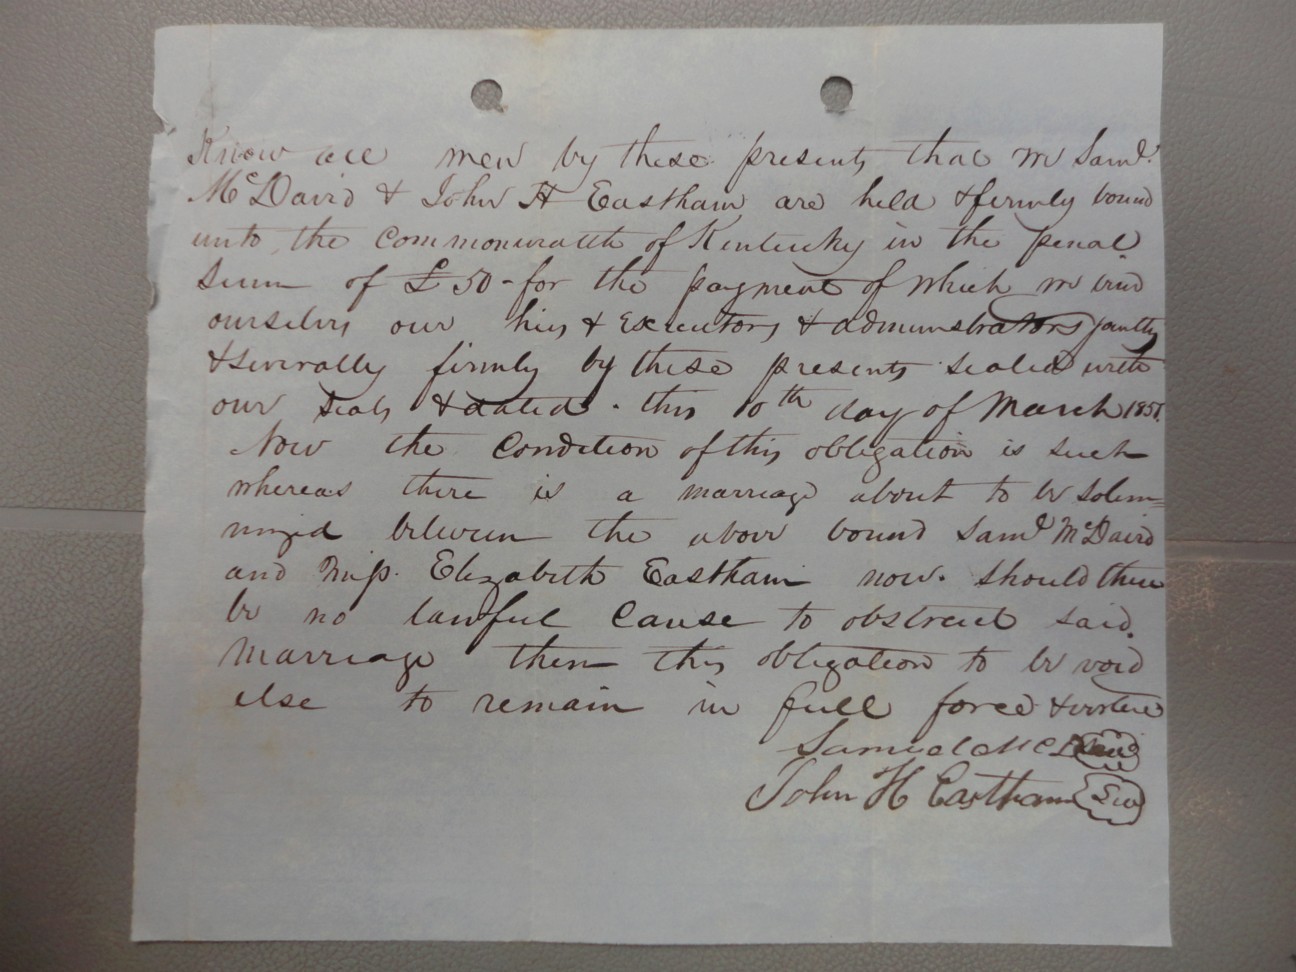 Know all men by these presents that we Saml.
McDavid & John H Eastham are held & firmly bound
unto the Commonwealth of Kentucky in the penal
Sum of £ 50 - for the payment of which we bind
ourselves our heirs & Executors & administrators jointly
& severally firmly by these presents sealed with
our seals & dated . this 10th day of March 185
Now the Condition of this obligation is such
whereas there is a marriage about to be solem=
nized between the above bound Saml McDavid
and Miss. Elizabeth Eastham now. should there
be no lawful Cause to obstruct said.
Marriage then this obligation to be void
else to remain in full force & virtue
Samuel McDavid
John H Eastham Seal